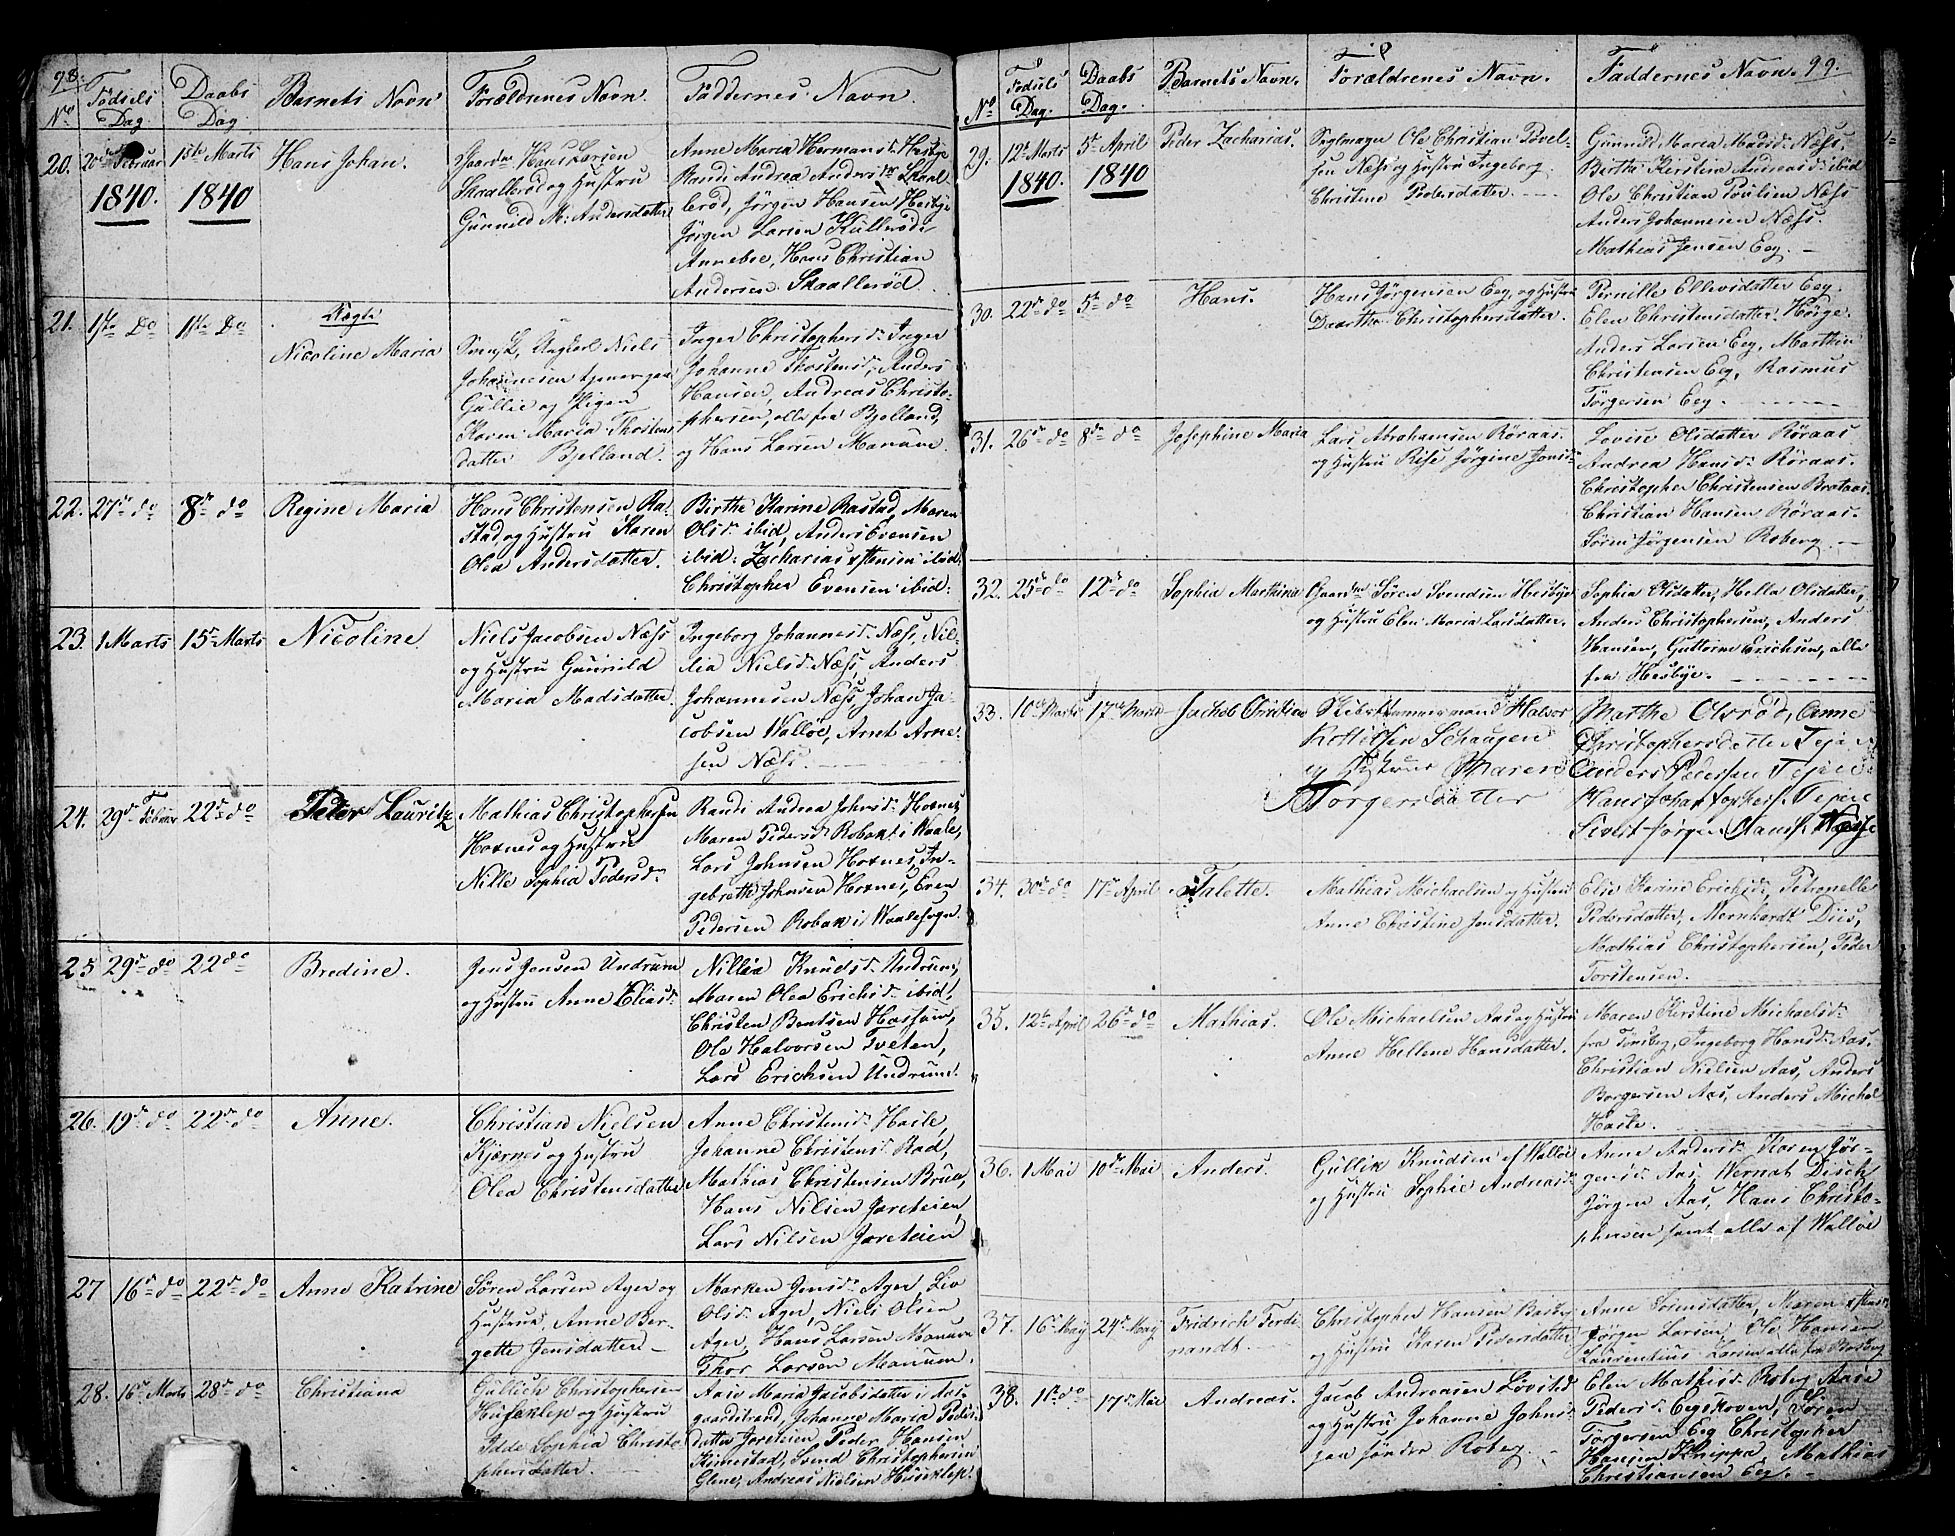 98.
No
Fødsels
Dag
Daabs
Dag
Barnets Navn
Forældrenes Navn.
Faddernes Navn.
20.
20de Februar
1840.
1ste Marts
1840
Hans Johan.
Gaardm Hans Larsen
Skallerød og Hustru
Gunnild M: Andersdatter
Anne Maria Hermansd: Hesbye
Randi Andrea Andersd: Skaal
lerød, Jørgen Hansen Hesbye
Jørgen Larsen Kullerød i
Anneboe, Hans Christian
Andersen Skaallerød
21.
1ste Do
1ste Do
Uægte
Nicoline Maria
Svensk, Ungkarl Niels
Johannesen tjener paa
Gullie og Pigen
Karen Maria Thostens
datter Bjelland.
Inger Christophersd: Inger
Johanne Thostensd:, Anders
Hansen, Andreas Christo-
phersen, alle fra Bjelland,
og Hans Larsen Manum
22.
27de do
8de do
Regine Maria
Hans Christensen Ra-
stad og Hustru Karen
Olea Andersdatter.
Birthe Karine Rastad, Maren
Olsd: ibid, Anders Evensen
ibid: Zacharias Istensen ibid.
Christopher Evensen ibid:
23.
1 Marts
15de Marts
Nicoline
Niels Jacobsen Næss
og Hustru Gunnild
Maria Madsdatter.
Ingeborg Johannesd: Næss, Nil-
lia Nielsd: Næss, Anders
Johannesen Næss, Johan Ja-
cobsen Walløe, Arnt Arne-
sen Næss.
24.
29de Februar
22de do
Peder Lauritz
Mathias Christophersen
Hoxnes og Hustru
Nille Sophia Pedersd
Randi Andrea Johnsd: Hoxnes,
Maren Pedersd: Robak i Waale,
Lars Johnsen Hoxnes, In-
gebreth Johnsen Hoxnes, Even
Pedersen Robak i Waale sogn
25
29de do
22 do
Bredine.
Jens Jensen Undrum
og Hustru Anne Eliasd:
Nillea Knudsd: Undrum,
Maren Olea Erichsd: ibid,
Christen Bentsen Hassum,
Ole Halvorsen Tveten,
Lars Erichsen Undrum.
26.
19de do
22de do
Anne.
Christian Nielsen
Kjærnes og Hustru
Olea Christensdatter
Anne Christensd: Hasle,
Johanne Christensd: Rad,
Mathias Christensen Brue,
Hans Nilsen Jareteien,
Lars Nilsen Jareteien
27
16de do
22de do
Anne Katrine
Søren Larsen Ager og
Hustrue, Anne Ber-
gette Jensdatter
Marken Jensd: Ager, Liv
Olsd: Ager, Niels Olsen
Ager, Hans Larsen Manum
Thor Larsen Manum.
28.
16de Marts
28de do
Christiana
Gullich Christophersen
Husaklep og Hustru
Idde Sophia Christo
phersdatter.
Aase Maria Jacobsdatter i Aas-
gaardstrand, Johanne Maria Peders
datter Jareteien Peder Hansen
Kirkestad, Svend Christophersen
Glene, Andreas Nielsen Husaklep.
No
Fødsels
Dag.
Daabs
Dag.
Barnets Navn.
Forældrenes Navn.
Faddernes Navn.
99.
29.
12te Marts
1840.
5te April
1840
Peder Zacharias.
Seglmager Ole Christian Povel-
sen Næss og Hustru Ingeborg
Christine Pedersdatter.
Gunnild Maria Madsd: Næss,
Berthe Kirstine Andreasd: ibid
Ole Christian Poulsen Næss
Anders Johannesen Næss.
Mathias Jensen Eeg.
30.
22de do
5te do
Hans.
Hans Jørgensen Eeg og Hustru
Daarthe Christophersdatter.
Pernille Ellevsdatter Eeg.
Elen Christensdatter Horge.
Anders Larsen Eeg, Marthin
Christensen Eeg, Rasmus
Torgersen Eeg.
31.
26de do
8de do
Josephine Maria
Lars Abrahamsen Røraas.
og Hustru Rise Jørgine Jonsd:
Lovise Olsdatter Røraas
Andrea Hansd: Røraas.
Christopher Christensen Brataas
Christian Hansen Røraas.
Søren Jørgensen Roberg.
32.
25de do
12de do
Sophia Marthina
Gaardm Søren Svendsen Hesbye
og Hustru Elen Maria Larsdatter.
Sophia Olsdatter, Hella Olsdatter,
Anders Christophersen, Anders
Hansen, Guttorm Erichsen, alle
fra Hesbye.
33.
10de Marts
17de Marts
Jachob Cristian
Skibstømmermand Halvor
Schaugen
og Hustrue Maren
Torgersdatter
Marthe Olsrød, Anne
Christophersdatter Teje
Anders Pedersen Tejie
Sivert Jørgen Hans: Næsse
34.
30de do
17de April
Talette.
Mathias Michaelsen og Hustru
Anne Christine Jensdatter.
Elie Karine Erichsd:, Petronelle
Pedersdatter, Mernhardt Diis,
Mathias Christophersen, Peder
Torstensen.
35.
12te April
26de do
Mathias.
Ole Michaelsen Aas og Hustru
Anne Hellene Hansdatter.
Maren Kirstine Michaelsd:
fra Tønsbeg, Ingeborg Hansd: Aas.
Christian Nielsen Aas, Anders
Borgersen Aas, Anders Michel
Hasle.
36.
1 Mai
10de Mai
Anders.
Gullik Knudsen af Walløe
og Hustru Sophie Andreasd:
Anne Andersd: Karen Jør-
gensd: Aas, Wernat Disch,
Jørgen Aas, Hans Christo-
phersen samt alle af Walløe
37.
16de May
24de May
Fridrich Ferdi
nandt.
Christopher Hansen Basberg
og Hustru Karen Pedersdatter
Anne Sørensdatter, Maren Istensd:
Jørgen Larsen, Ole Hansen
Laurentius Larsen alle fra Basberg
38.
1ste do
17de Mai
Andreas.
Jacob Andreasen Løvsted
og Hustru Johanne Johnsd:
paa søndre Roberg.
Elen Mathisd: Roberg Aase
Pedersd: Eegskoven, Søren
Torgersen Eeg Christopher
Hansen Knippa, Mathias
Christiansen Eeg.